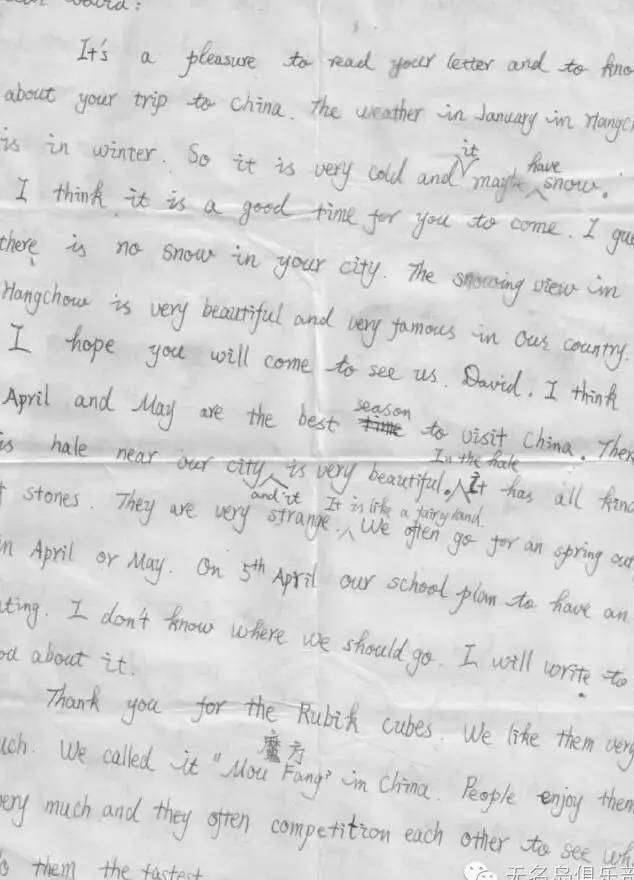 It's a pleasure to read your letter and to kno
about your trip to China. The weather in January in Hangc
is in winter. So it is very cold and it maybe have snow.
I think it is a good time for you to come. I gu
there is no snow in your city. The snowing view in
Hangchow is very beautiful and very famous in our country.
I hope you will come to see us. David. I think
April and May are the best season to visit China. There
is hale near our city and it is very beautiful. In the hale It has all kind
f stones. They are very strange. It is like a fairy land. We often go for an spring out
in April or May. On 5th April our school plan to have an
uting. I don't know where we should go. I will write to
ou about it.
Thank you for the Rubik cubes. We like them very
uch. We called it "Mou Fang" 魔方 in China. People enjoy them
very much and they often competition each other to see wh
o them the fastest
无名岛俱乐部